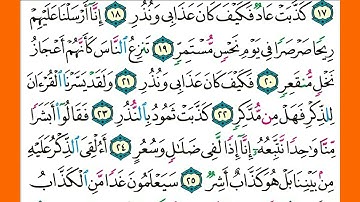 ١٧ كَذَّبَتْ عَادٌ فَكَيْفَ كَانَ عَذَابِى وَنُذُرِ ١٨ إِنَّآ أَرْسَلْنَا عَلَيْهِمْ
رِيحًا صَرْصَرًا فِى يَوْمِ نَحْسٍ مُّسْتَمِرٍّ ١٩ تَنزِعُ ٱلنَّاسَ كَأَنَّهُمْ أَعْجَازُ
نَخْلٍ مُّنقَعِرٍ ٢٠ فَكَيْفَ كَانَ عَذَابِى وَنُذُرِ ٢١ وَلَقَدْ يَسَّرْنَا ٱلْقُرْءَانَ
لِلذِّكْرِ فَهَلْ مِن مُّدَّكِرٍ ٢٢ كَذَّبَتْ ثَمُودُ بِٱلنُّذُرِ ٢٣ فَقَالُوٓا۟ أَبَشَرًا
مِّنَّا وَٰحِدًا نَّتَّبِعُهُۥٓ إِنَّآ إِذًا لَّفِى ضَلَٰلٍ وَسُعُرٍ ٢٤ أَءُلْقِىَ ٱلذِّكْرُ عَلَيْهِ
مِنۢ بَيْنِنَا بَلْ هُوَ كَذَّابٌ أَشِرٌ ٢٥ سَيَعْلَمُونَ غَدًا مَّنِ ٱلْكَذَّابُ